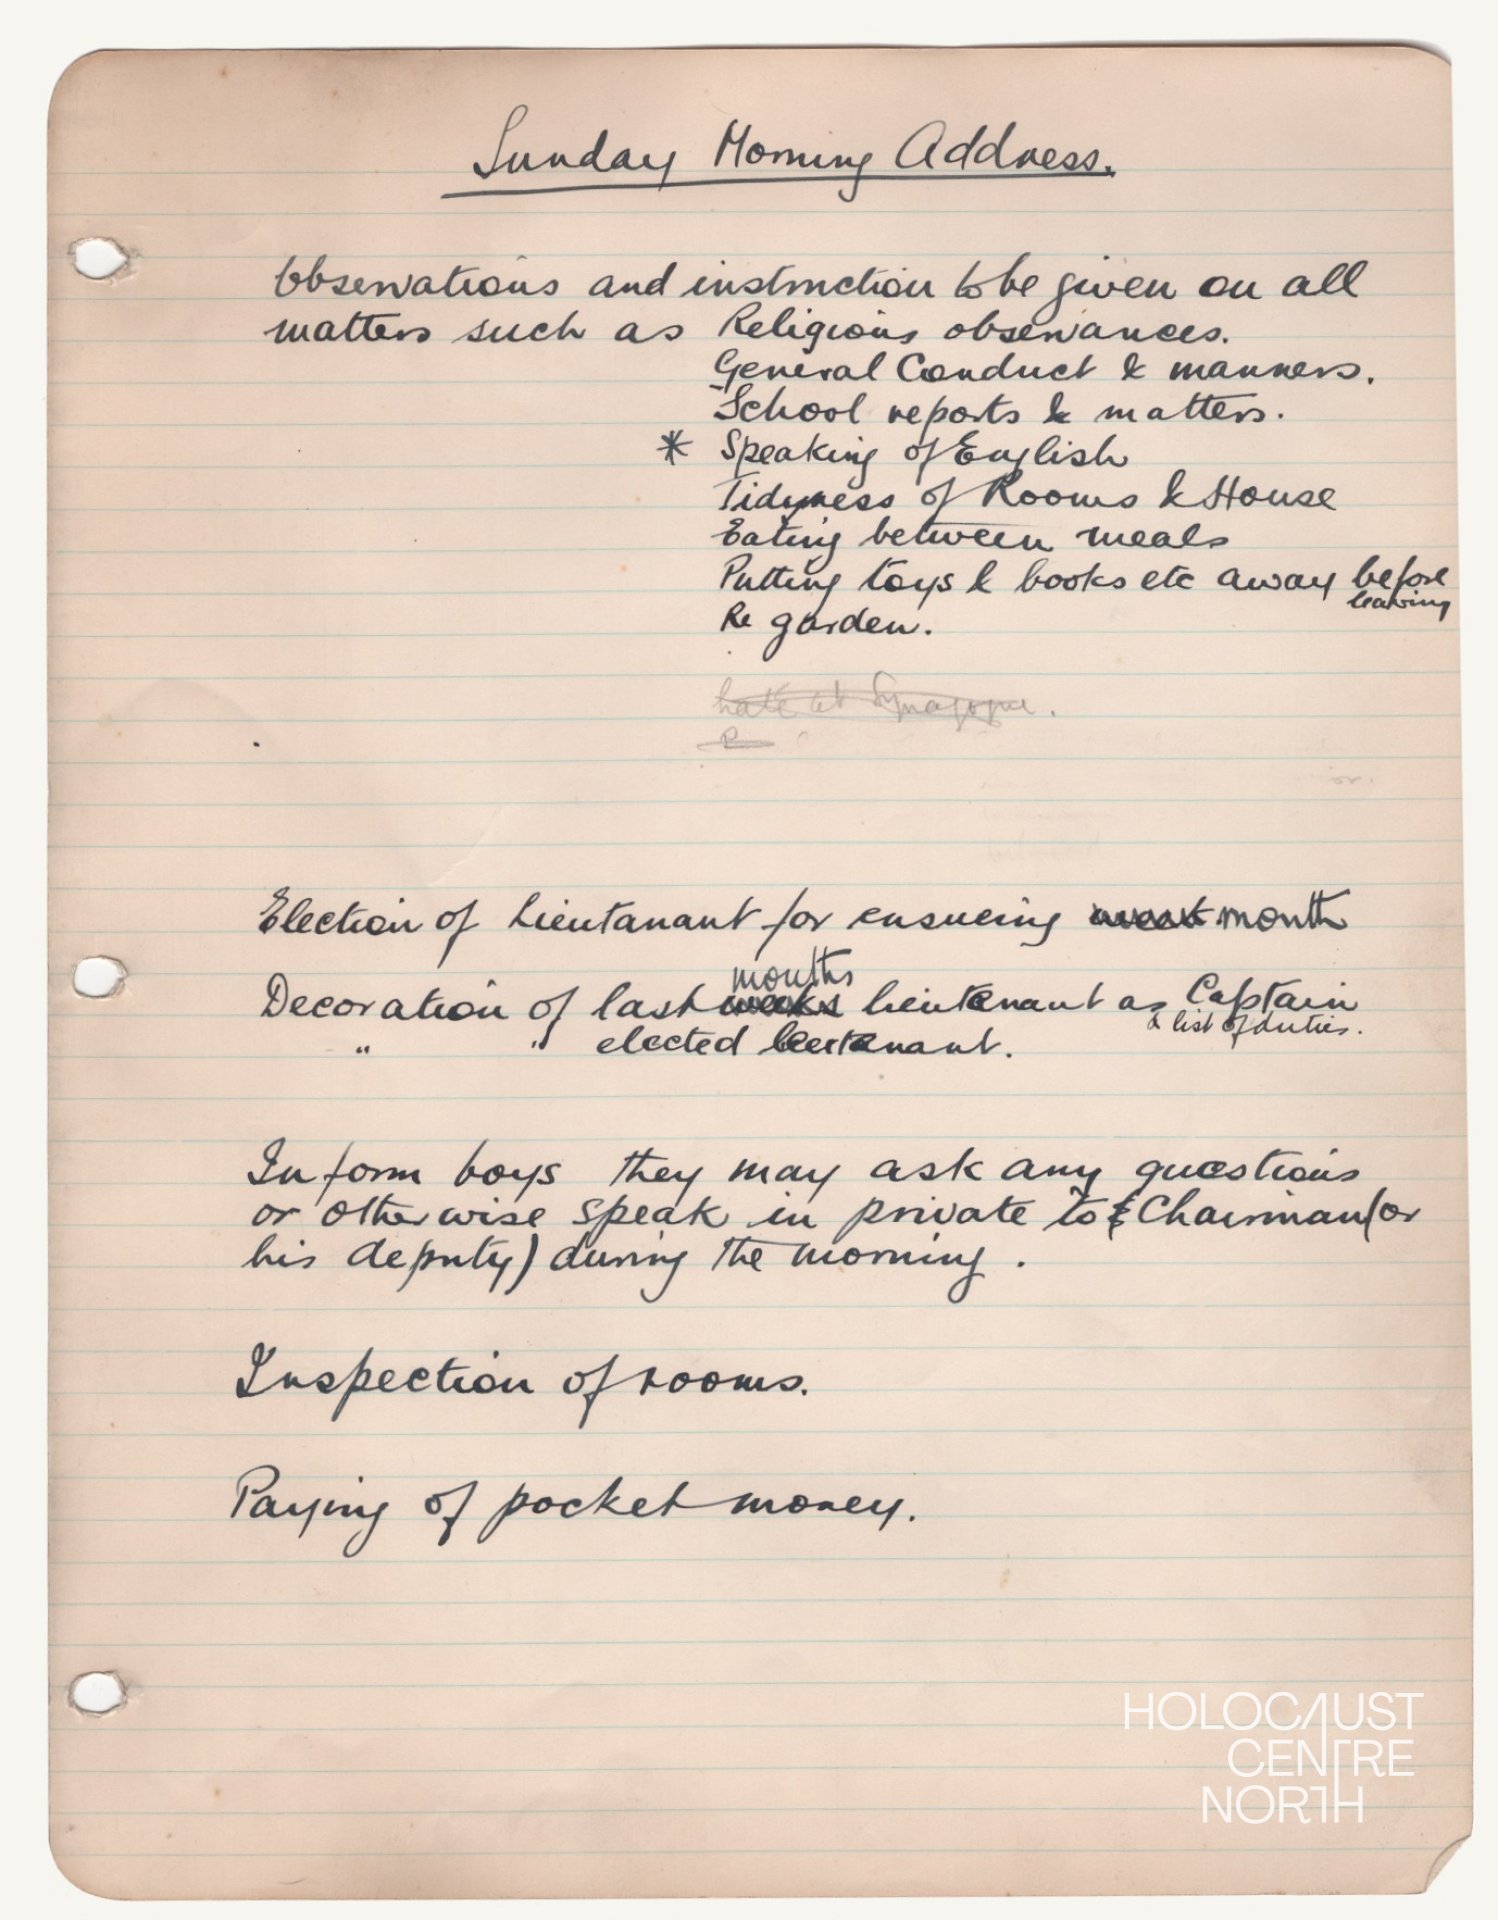 Sunday Morning Address.
Observations and instruction to be given on all
matters such as Religious observances.
General Conduct & manners.
School reports & matters.
* Speaking of English
Tidyness of Rooms & House
Eating between meals
Putting toys & books etc away before
leaving
Re garden.
Late at Synagogue.
R
or.
Election of Lieutanant for ensueing week month
months
Decoration of last weeks lieutenant as Captain
& list of duties.
" " elected lieutenant.
Inform boys they may ask any questions
or otherwise speak in private to Chairman (or
his deputy) during the morning.
Inspection of rooms.
Paying of pocket money.
HOLOCAUST
CENTRE
NORTH